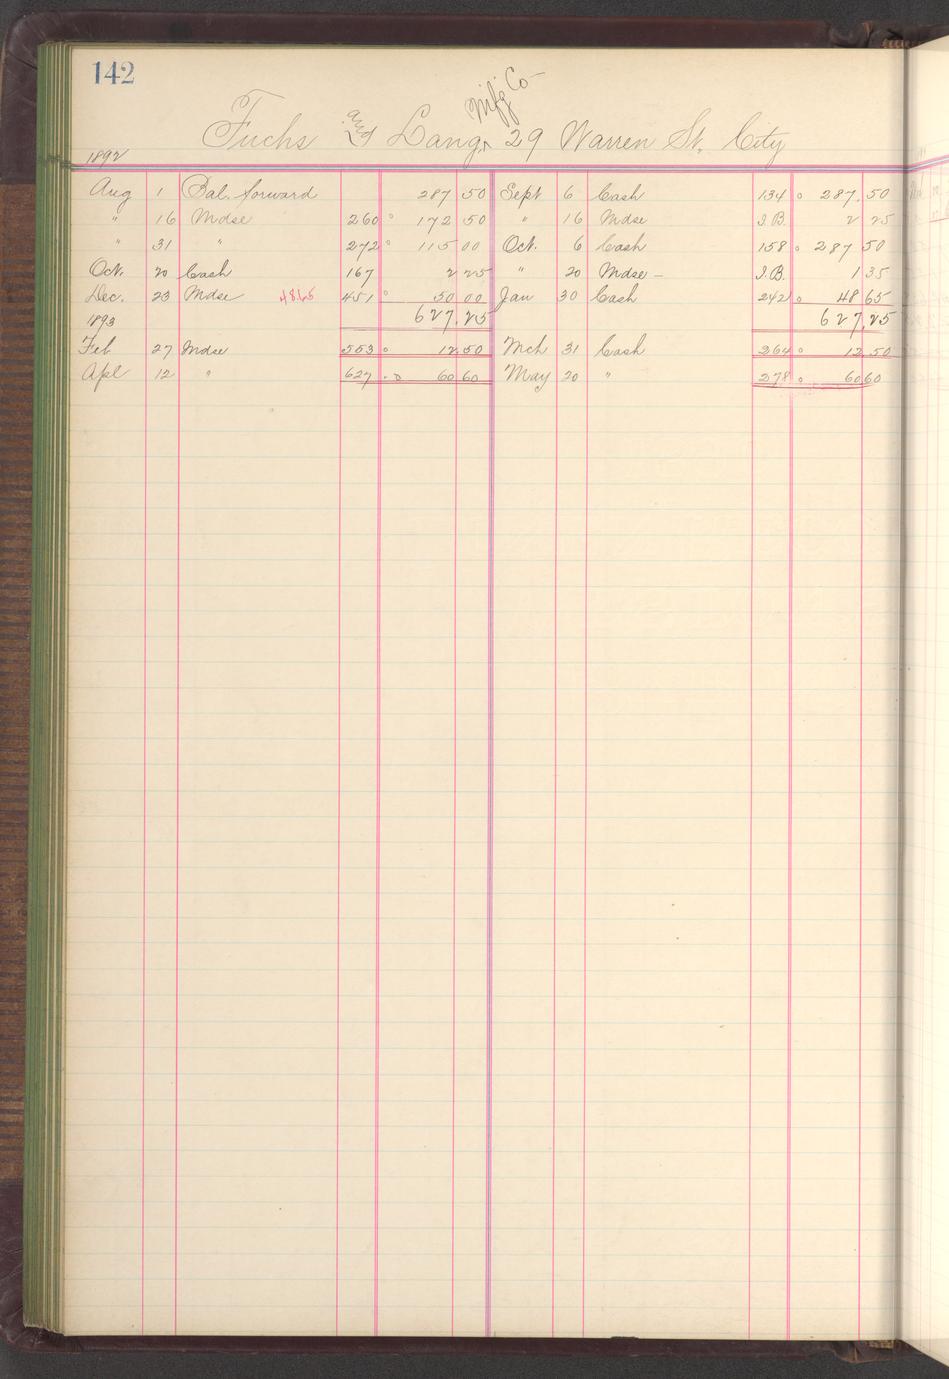 142
Mfg Co
Fuchs and Lang ‸ 29 Warren St. City
1892
Aug 1 Bal. forward 287 50 Sept 6 Cash 134 287.50
" 16 Mdse 260 172 50 " 16 Mdse J.B. 2 25
" 31 " 272 115 00 Oct. 6 Cash 158 287 50
Oct. 20 Cash 167 2 25 " 20 Mdse — J.B. 1 35
Dec. 23 Mdse 48.65 451 50 00 Jan 30 Cash 242 48 65
1893 627.25 627.25
Feb 27 Mdse 553 12.50 Mch 31 Cash 264 12 50
Apl 12 " 627 60 60 May 20 " 278 60 60